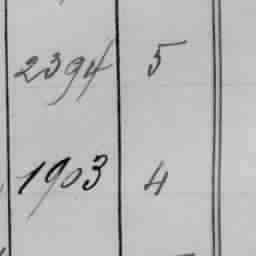 2394 5
1903 4